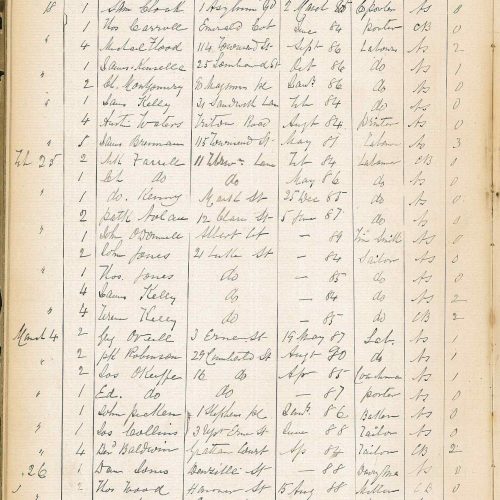 18 1 Sam Clark 1 2 March 85 porter As 0
" 1 Thos Carroll Emerald Cot June 84 Porter CB 0
4 Michael Flood 114 Townsend St Sept 86 Labour As 2
" 1 James 25 Lombard St Oct 86 do As 1
2 Montgomery Magennis Pl Jany 86 do As 0
" 1 James Kelly 21 Sandwith Lane Feb 84 do As 0
" 4 Waters Triton Road Augt 84 As 0
" 5 James Brennan 115 Townsend St May 87 Labour As 3
Feb 25 2 Farrell 11 Lane Feb 84 Labourer CB 0
1 do do May 86 do As 0
" 1 do. Kenny Mark St 25 Dec 85 do As 0
2 patk Nolan 12 Clare St 5 June 87 do As 0
" 1 John O'Donnell Albert Ct — 89 Smith As 0
2 John Jones 21 Luke St — 84 Sailor As 0
" 1 Thos. Jones do — 85 do As 0
4 James Kelly do — 84 do As 2
" 4 Kelly do — 85 do CB 2
March 4 2 O'Neill 3 Erne St 19 May 87 Lab. As 1
" 2 pk Robinson 29 St Augt 80 do As 1
2 Jos O'Keeffe 16 do Apr 85 Coachman As 0
" 1 Ed. do do — 87 porter As 0
1 John 1 Stephens Pl Jany. 86 As 0
" 1 Jos Collins 3 Upr Erne St June 88 Tailor As 0
4 Baldwin Grattan Court Apr 84 Tailor CB 2
" 26 1 Dan Jones Denzille St — 88 As 0
" 2 Thos Wood Hanover St 15 Aug 88 CB 0